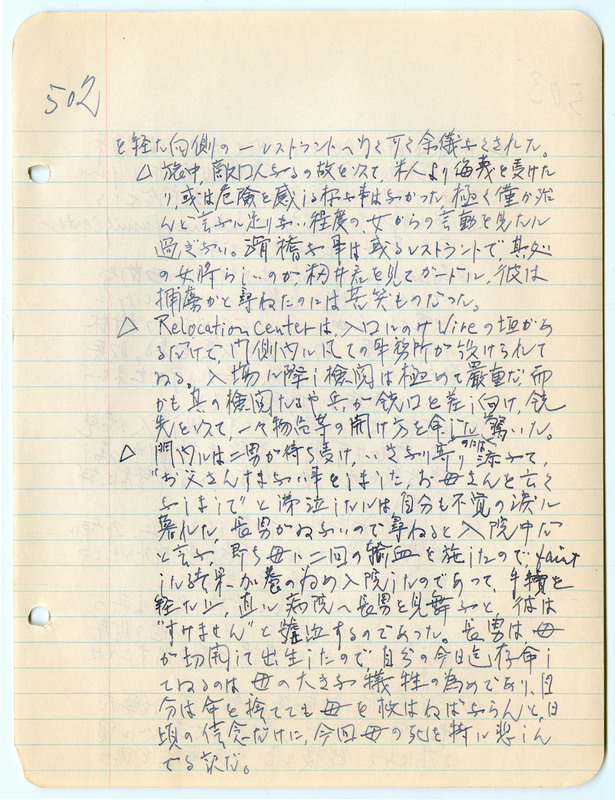 502
を経た向側の一レストラントへ行く可く余儀なくされた。
△ 旅中、敵国人なるの故を以て、米人より侮蔑を受けた
り、或は危険を感じる様な事はなかった 極く僅か殆
んど言ふに足りない程度の、女からの言動を見たに
過ぎない。滑稽な事は或るレストラントで、其処
の女将らしいのが、籾井君を見てガードに、彼は
捕虜かと尋ねたのには苦笑ものだった。
△ Relocation Centerは、入口にのみWireの垣があ
るだけで、門側内に凡ての事務所が設けられて
ゐる。入場に際し検閲は極めて厳重だ、而
かも其の検閲たるや兵が銃口を差し向け、銃
先を以て、一々物品等の開け方を命じたには驚いた。
△ 門内には二男が待ち受け、いきなり寄り添ふて、
"お父さんすまない事をしました。お母さんを亡く
なしまして"と 啼泣したには、自分も不覚の涙に
暮れた、長男がゐないので尋ねると入院中だ
と言ふ 即ち母に二回の輸血を施したので、faint
した結果が養の為め入院したのであって、手続を
経た上、直に病院へ長男を見舞ふと、彼は
"すみません"と 号泣するのであった。長男は、母
が切開して出生したので、自分の今日迄存命し
てゐるのは、母の大きな犠牲の為めであり、自
分は命を捨てても母を救はねばならんと、日
頃の信念だけに、今回母の死を特に悲しん
でる訳だ。